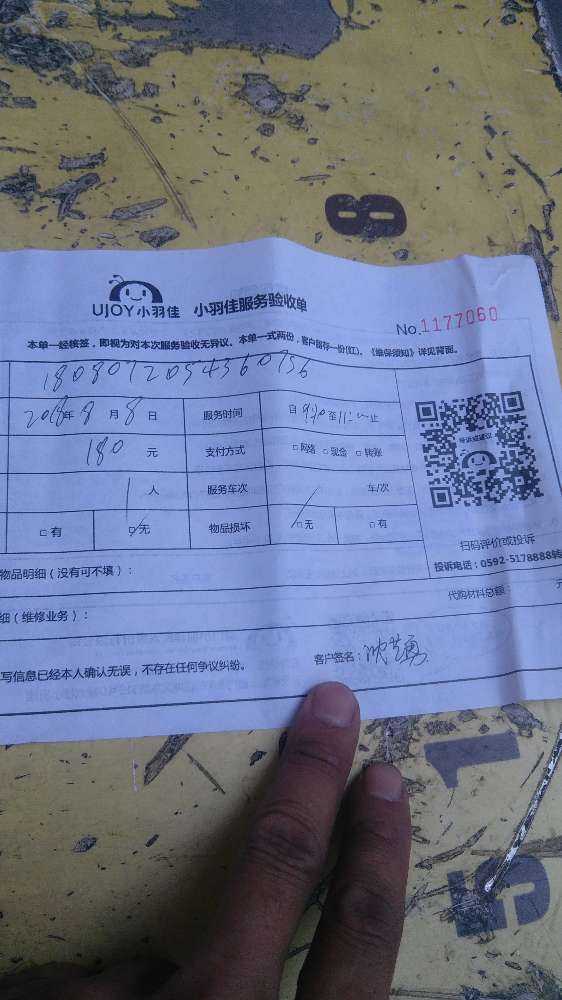 8
UJOY小羽佳 小羽佳服务验收单
No.1177060
本单一经核签，即视为对本次服务验收无异议。本单一式两份，客户留存一份(红)。《维保须知》详见背面。
2018年 8 月 8 日 服务时间 自 至 止
180 元 支付方式 □网络 □现金 □转账
1 人 服务车次 / 车/次
□有 □无 物品损坏 □无 □有
投诉或建议
扫码评价或投诉
投诉电话：0592-5178888转
物品明细（没有可不填）：
代购材料总额： 元
细（维修业务）：
写信息已经本人确认无误，不存在任何争议纠纷。 客户签名：
1
5